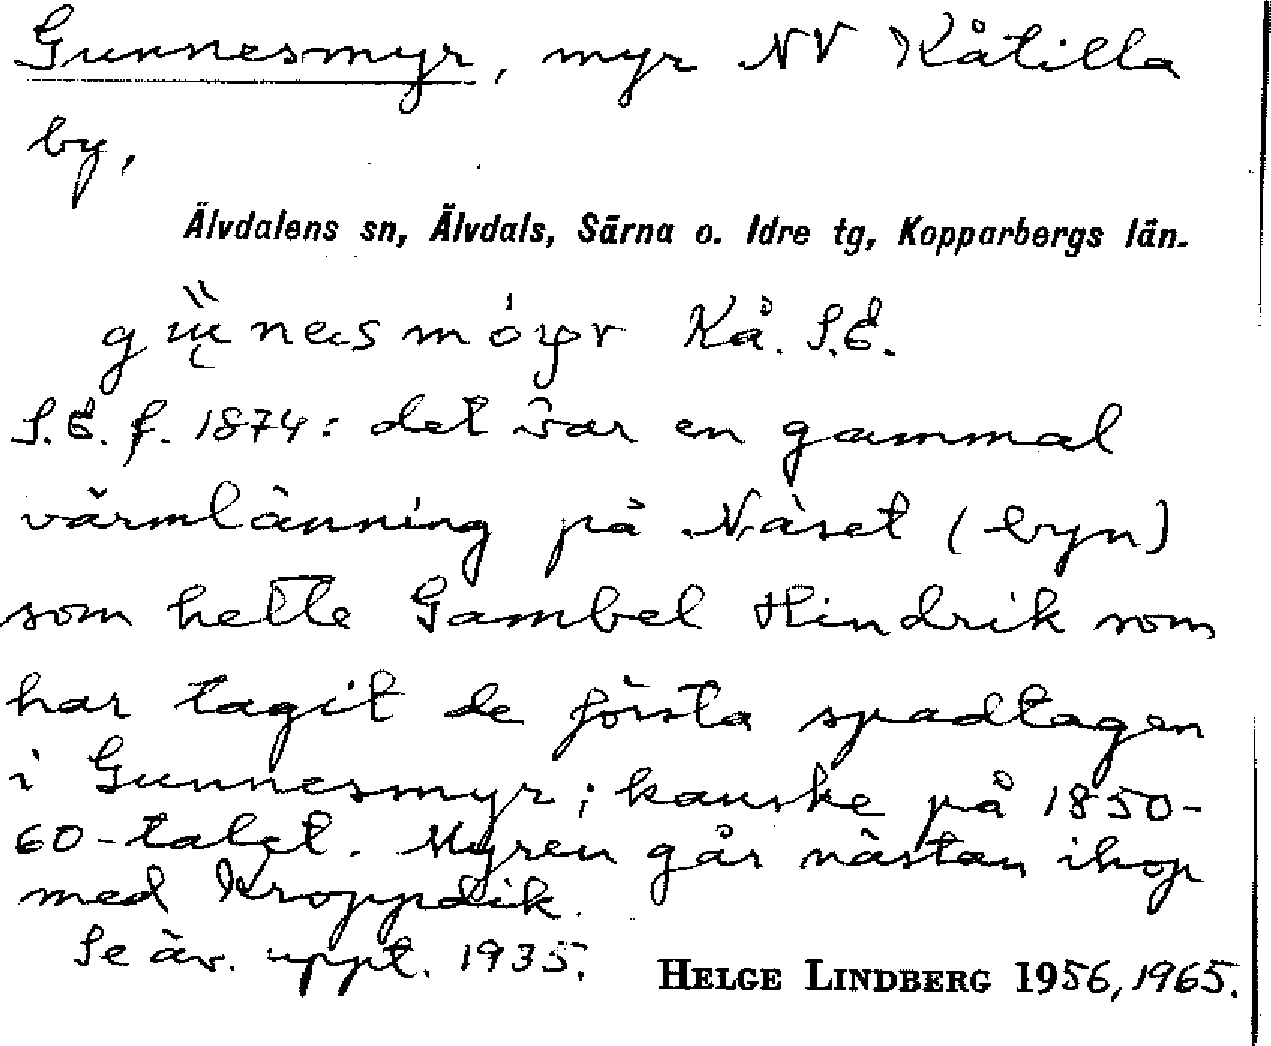 Gunnesmyr, myr NV Kåtilla
by,
Älvdalens sn, Älvdals, Särna o. Idre tg, Kopparbergs län.
Kå. S.E.
S.E. f. 1874: det var en gammal
värmlänning på Näset (byn)
som hette Gambel Hindrik som
har tagit de första spadtagen
i Gunnesmyr; kanske på 1850-
60-talet. Myren går nästan ihop
med Kroppdik.
Se äv. uppt. 1935.
HELGE LINDBERG 1956, 1965.